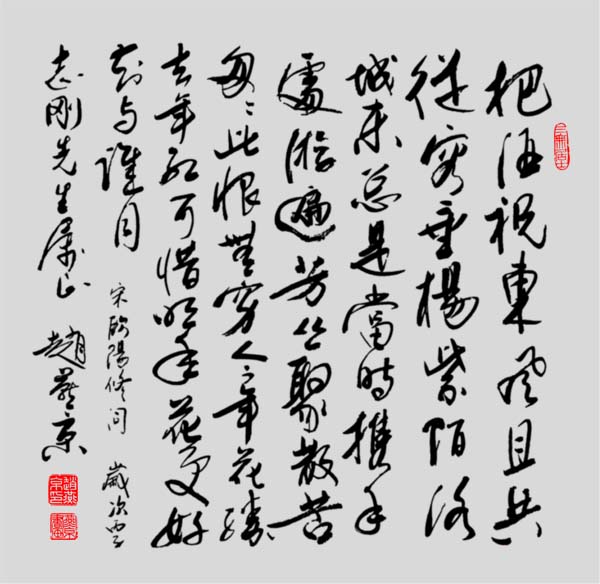 把酒祝東風且共
從容垂楊紫陌洛
城東总是當時攜手
處游遍芳丛聚散苦
匆〻此恨無窮今年花勝
去年紅可惜明年花更好
知与誰同 宋歐陽修詞 歲次
志剛先生屬正 趙燕京